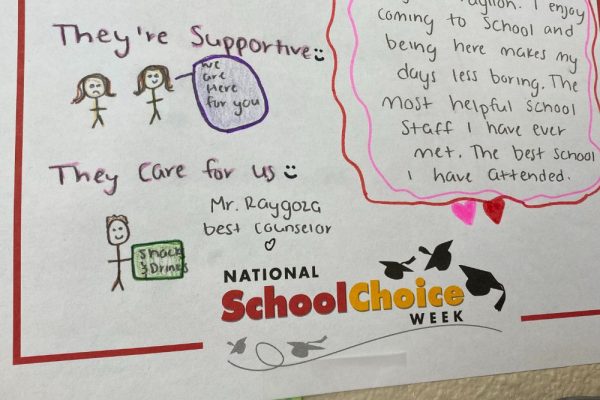 They're Supportive
we
are
Here
for you
They Care for us
Snack
& Drinks
Mr. Raygoza
best counselor
I enjoy
coming to School and
being here makes my
days less boring. The
most helpful school
Staff I have ever
met. The best school
I have attended.
NATIONAL
SchoolChoice
WEEK